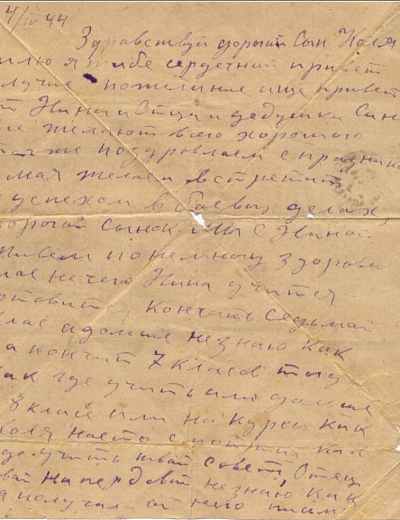 4/IV 44
Здравствуй дорогой Сын Коля
шлю я тибе сердечний привет
лучие пожелание ище привет
т Нина и Отца и дедушки Син
желают всего хорошого
также поздровлаем с празник
мая желаем встретить
успехом в боевых делах,
орогой Сынок Мы с Ниной
живем понемногу здорови
нечего Нина учится
отовится кончать Седьмой
клас а дальше незнаю как
а кончит 7 класов тогд
как где учить или дальше
8 класе или на Курси как
Коля насто смотриш как
где учить твой совет, Отец
незнаю как
я получила от него писмо